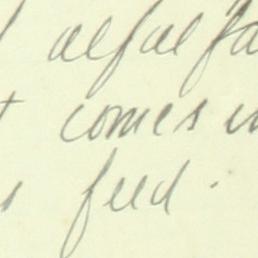 alfalfa
comes in
feed.